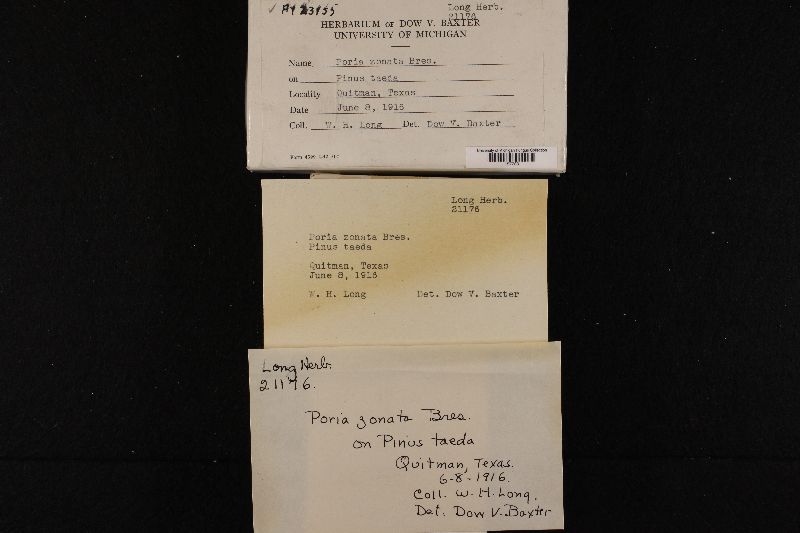 Long Herb.
21176
HERBARIUM OF DOW V. BAXTER
UNIVERSITY OF MICHIGAN
Name Poria zonata Bres.
on Pinus taeda
Locality Quitman, Texas
Date June 8, 1916
Coll. W. H. Long Det. Dow V. Baxter
University of Michigan Fungus Collection
Long Herb.
21176
Poria zonata Bres.
Pinus taeda
Quitman, Texas
June 8, 1916
W. H. Long Det. Dow V. Baxter
Long Herb.
21176.
Poria zonata Bres.
on Pinus taeda
Quitman, Texas.
6-8-1916.
Coll. W. H. Long.
Det. Dow V. Baxter